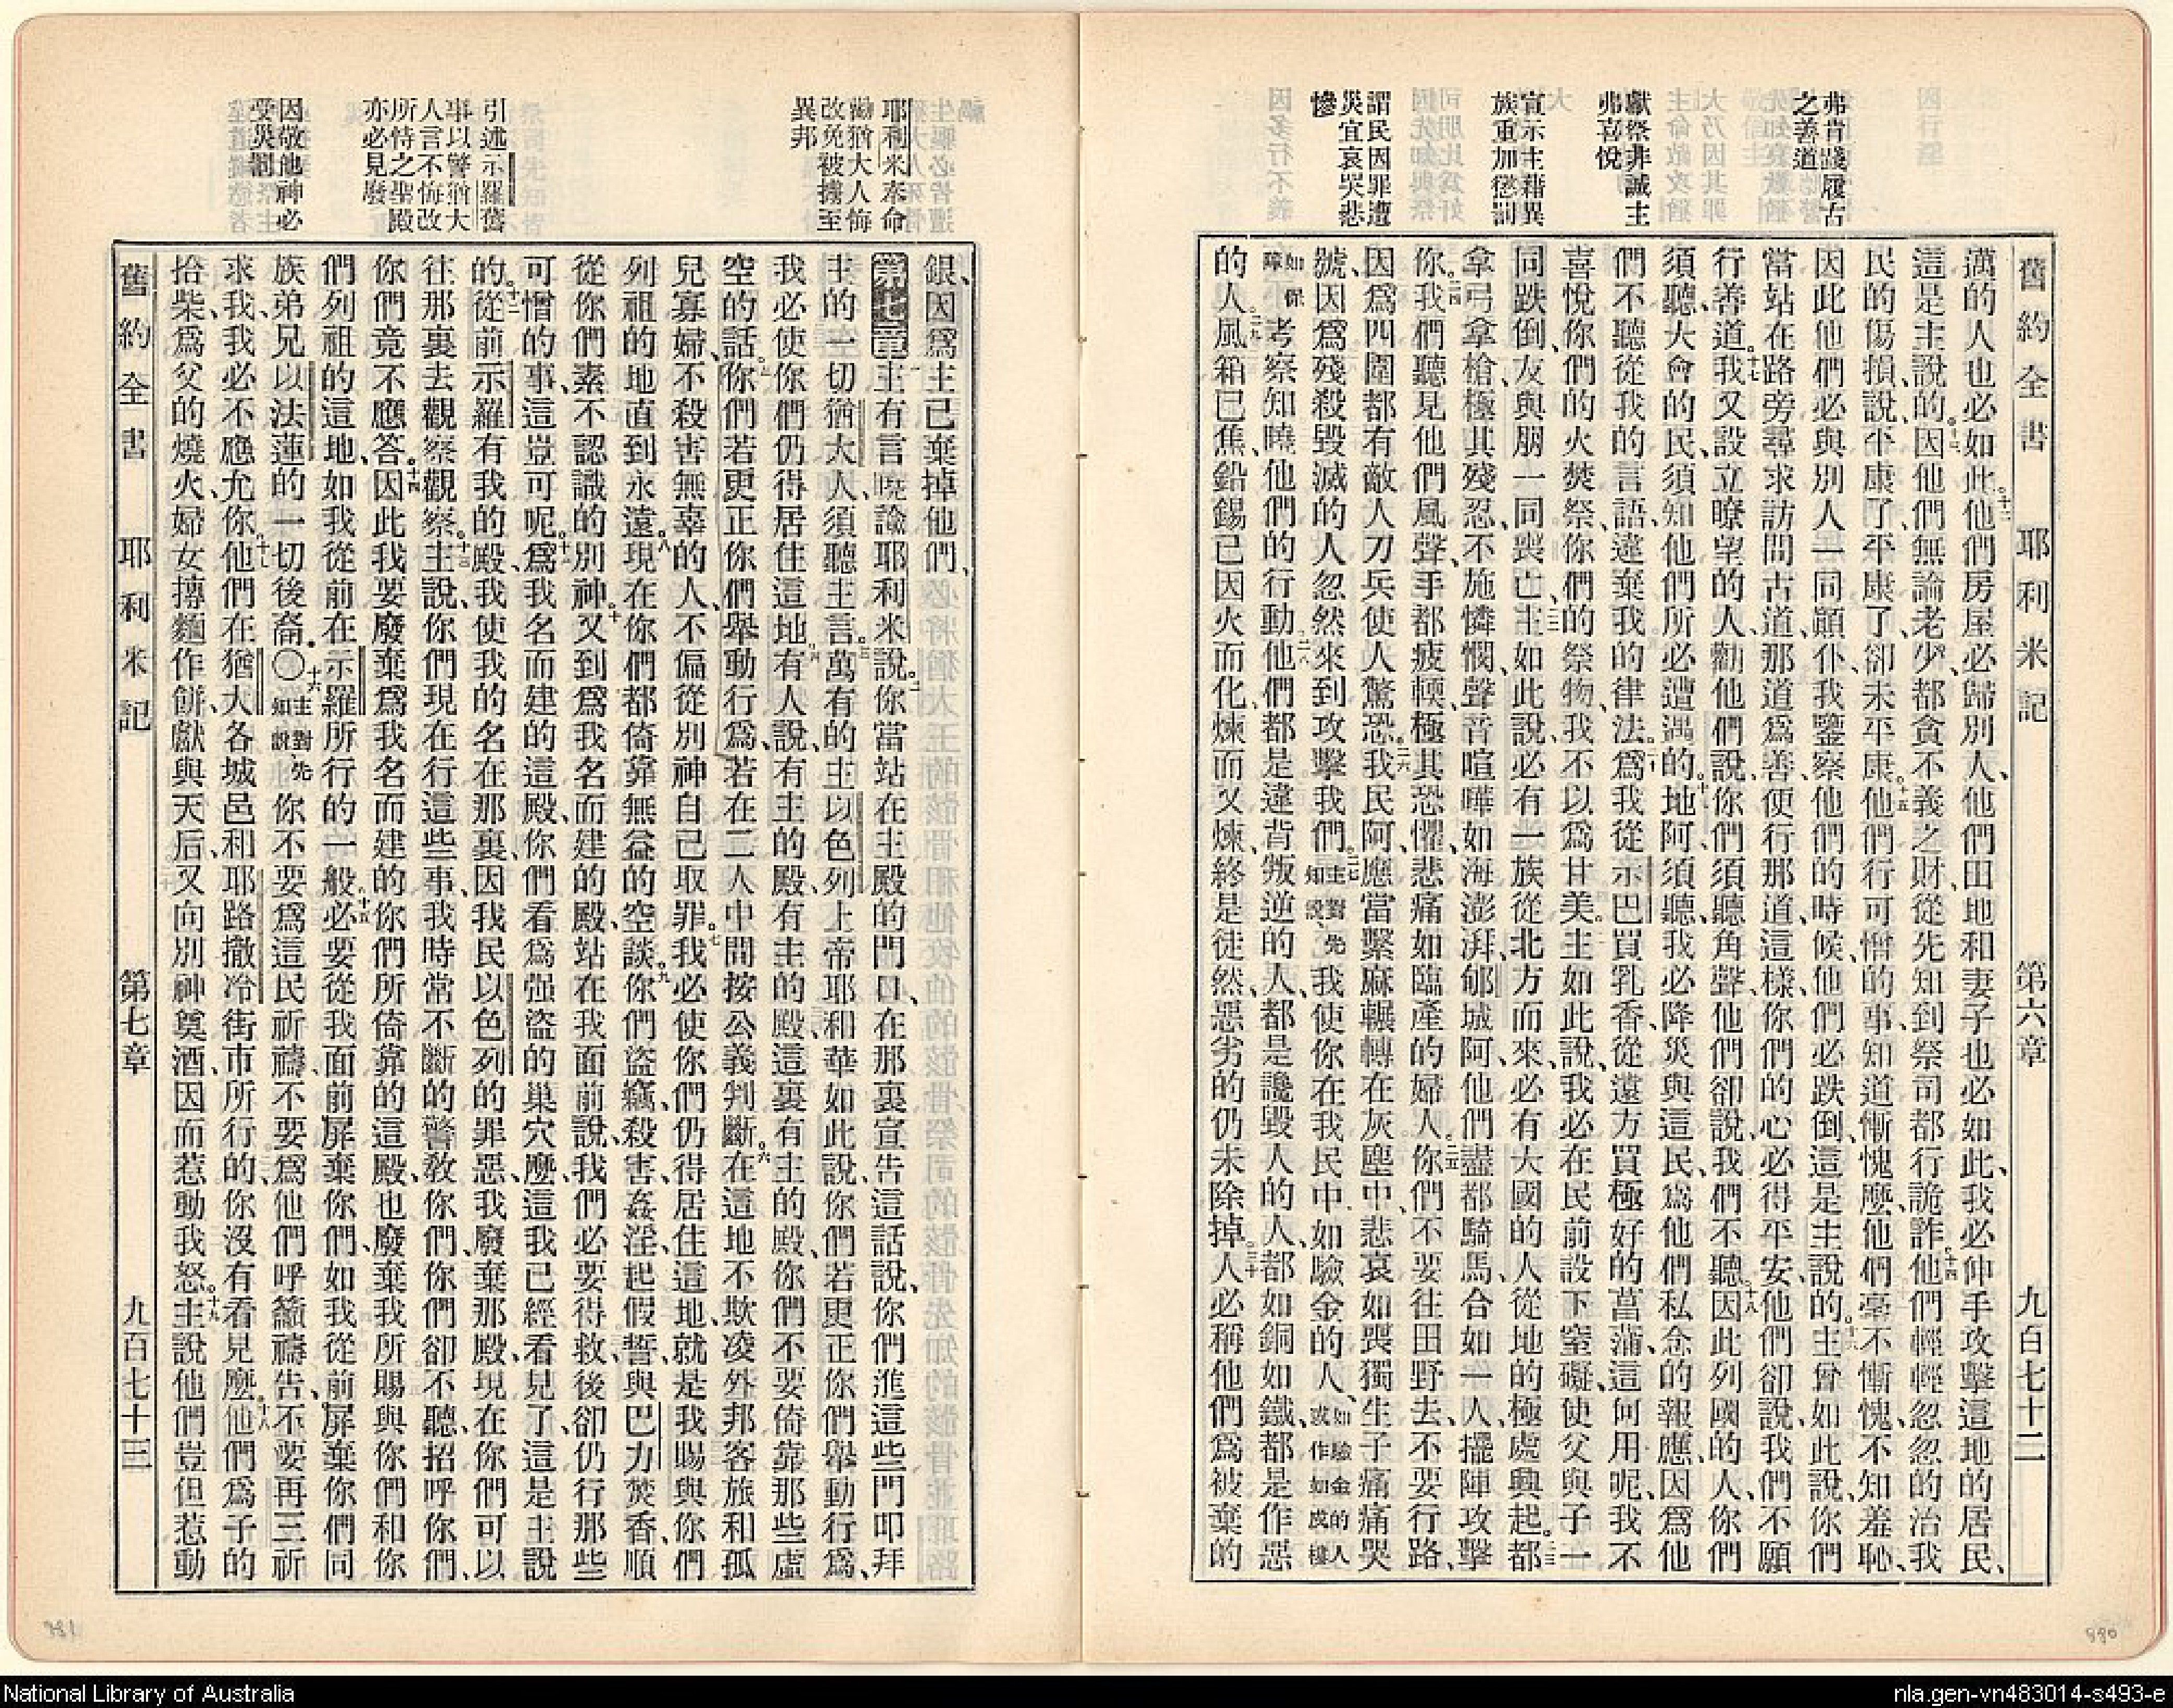 舊約全書 耶利米記 第六章 九百七十二
弗肯踐履古
之善道
獻祭非誠主
弗喜悅
宣示主藉異
族重加懲罰
謂民因罪遭
災宜哀哭悲
慘
邁的人也必如此。十二他們房屋必歸別人、他們田地和妻子也必如此、我必伸手攻擊這地的居民、
這是主說的。十三因他們無論老少、都貪不義之財、從先知到祭司都行詭詐。十四他們輕輕忽忽的治我
民的傷損、說、平康了、平康了、卻未平康。十五他們行可憎的事、知道慚愧麼、他們毫不慚愧、不知羞恥、
因此他們必與別人一同顚仆、我鑒察他們的時候、他們必跌倒、這是主說的。十六主曾如此說、你們
當站在路旁尋求訪問古道、那道爲善、便行那道、這樣、你們的心必得平安、他們卻說、我們不願
行善道。十七我又設立瞭望的人、勸他們說、你們須聽角聲、他們卻說、我們不聽。十八因此列國的人、你們
須聽、大會的民、須知他們所必遭遇的。十九地阿、須聽、我必降災與這民、爲他們私念的報應、因爲他
們不聽從我的言語、違棄我的律法。二十爲我從示巴買乳香、從遠方買極好的菖蒲、這何用呢、我不
喜悅你們的火焚祭、你們的祭物、我不以爲甘美。二一主如此說、我必在民前設下窒礙、使父與子一
同跌倒、友與朋一同喪亡。二二主如此說、必有一族從北方而來、必有大國的人從地的極處興起。二三都
拿弓拿槍、極其殘忍、不施憐憫、聲音喧嘩如海澎湃、郇城阿、他們盡都騎馬、合如一人、擺陣攻擊
你。二四我們聽見他們風聲、手都疲輭、極其恐懼、悲痛如臨產的婦人。二五你們不要往田野去、不要行路、
因爲四圍都有敵人刀兵使人驚恐。二六我民阿、應當繫麻輾轉在灰塵中、悲哀如喪獨生子、痛痛哭
號、因爲殘殺毀滅的人忽然來到攻擊我們。二七主對先知說、我使你在我民中、如驗金的人、如驗金的人或作如成樓
如保障考察知曉他們的行動。二八他們都是違背叛逆的人、都是讒毀人的人、都如銅如鐵、都是作惡
的人。二九風箱已焦、鉛錫已因火而化、煉而又煉、終是徒然、惡劣的仍未除掉。三十人必稱他們爲被棄的
耶利米奉命
勸猶大人悔
改免被擄至
異邦
引述示羅舊
事以警猶大
人言不悔改
所恃之聖殿
亦必見廢
因敬他神必
受災罰
銀、因爲主已棄掉他們、
第七章一主有言曉諭耶利米說。二你當站在主殿的門口、在那裏宣告這話說、你們進這些門叩拜
主的一切猶大人、須聽主言。三萬有的主以色列上帝耶和華如此說、你們若更正你們舉動行爲、
我必使你們仍得居住這地。四有人說、有主的殿、有主的殿、這裏有主的殿、你們不要倚靠那些虛
空的話。五你們若更正你們舉動行爲、若在二人中間按公義判斷。六在這地不欺凌外邦客旅和孤
兒寡婦、不殺害無辜的人、不偏從別神自己取罪。七我必使你們仍得居住這地、就是我賜與你們
列祖的地、直到永遠。八現在你們都倚靠無益的空談。九你們盜竊、殺害、姦淫、起假誓、與巴力焚香、順
從你們素不認識的別神。十又到爲我名而建的殿、站在我面前說、我們必要得救、後卻仍行那些
可憎的事、這豈可呢。十一爲我名而建的這殿、你們看爲强盜的巢穴麼、這我已經看見了、這是主說
的。十二從前示羅有我的殿、我使我的名在那裏、因我民以色列的罪惡、我廢棄那殿、現在你們可以
往那裏去觀察觀察。十三主說、你們現在行這些事、我時常不斷的警敎你們、你們卻不聽、招呼你們、
你們竟不應答。十四因此我要廢棄爲我名而建的你們所倚靠的這殿、也廢棄我所賜與你們和你
們列祖的這地、如我從前在示羅所行的一般。十五必要從我面前屏棄你們、如我從前屏棄你們同
族弟兄以法蓮的一切後裔。〇十六主對先知說、你不要爲這民祈禱、不要爲他們呼籲禱告、不要再三祈
求我、我必不應允你。十七他們在猶大各城邑和耶路撒冷街市所行的、你沒有看見麼。十八他們爲子的
拾柴、爲父的燒火、婦女摶麵作餅、獻與天后、又向別神奠酒、因而惹動我怒。十九主說、他們豈但惹動
舊約全書 耶利米記 第七章 九百七十三
981
980
National Library of Australia
nla.gen-vn483014-s493-e